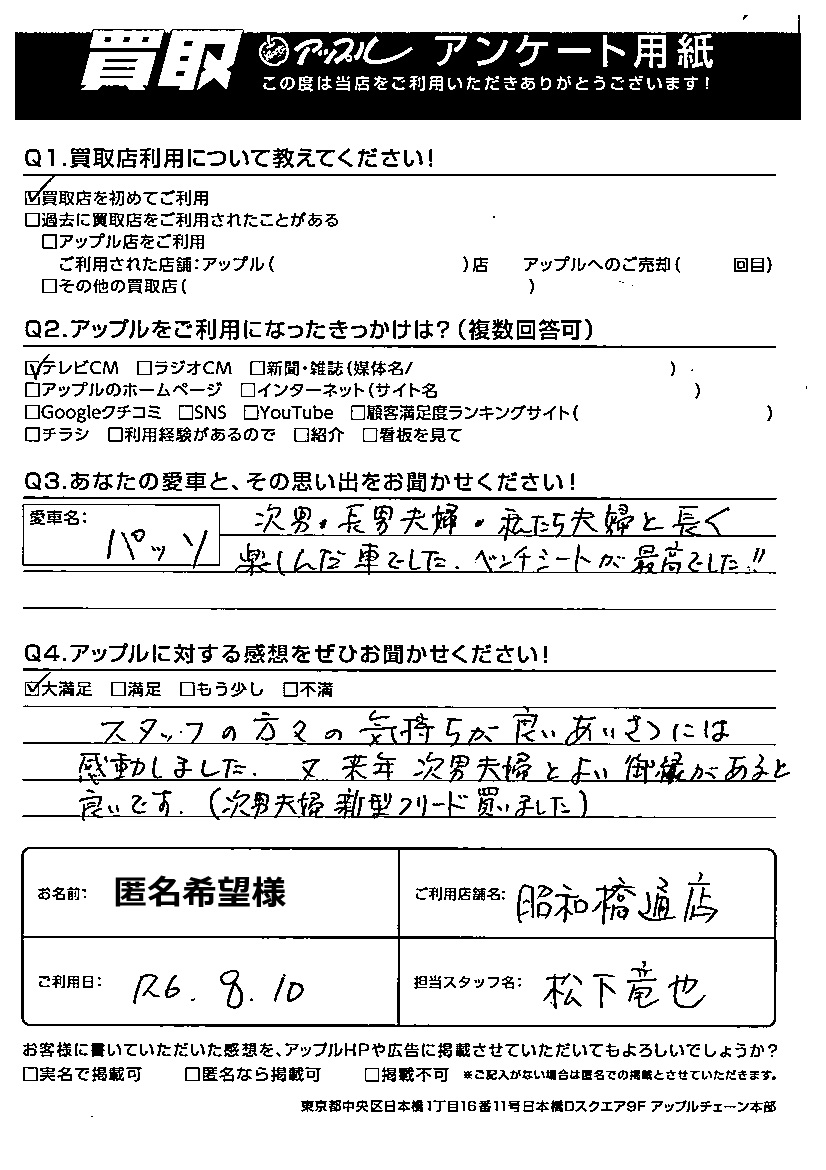 買取 アップル アンケート用紙
この度は当店をご利用いただきありがとうございます!
Q1.買取店利用について教えてください!
☑買取店を初めてご利用
□過去に買取店をご利用されたことがある
□アップル店をご利用
ご利用された店舗:アップル( )店 アップルへのご売却( 回目)
□その他の買取店( )
Q2.アップルをご利用になったきっかけは?(複数回答可)
☑テレビCM □ラジオCM □新聞・雑誌(媒体名/ )
□アップルのホームページ □インターネット(サイト名 )
□Googleクチコミ □SNS □YouTube □顧客満足度ランキングサイト( )
□チラシ □利用経験があるので □紹介 □看板を見て
Q3.あなたの愛車と、その思い出をお聞かせください!
愛車名: パッソ
次男・長男夫婦・私たち夫婦と長く
楽しんだ車でした. ベンチシートが最高でした!!
Q4.アップルに対する感想をぜひお聞かせください!
☑大満足 □満足 □もう少し □不満
スタッフの方々の気持ちが良いあいさつには
感動しました. 又来年次男夫婦とよい御縁があると
良いです.(次男夫婦新型フリード買いました)
お名前: 匿名希望様
ご利用店舗名: 昭和橋通店
ご利用日: R6.8.10
担当スタッフ名: 松下竜也
お客様に書いていただいた感想を、アップルHPや広告に掲載させていただいてもよろしいでしょうか?
□実名で掲載可 □匿名なら掲載可 □掲載不可 ※ご記入がない場合は匿名での掲載とさせていただきます。
東京都中央区日本橋1丁目16番11号日本橋Dスクエア9F アップルチェーン本部